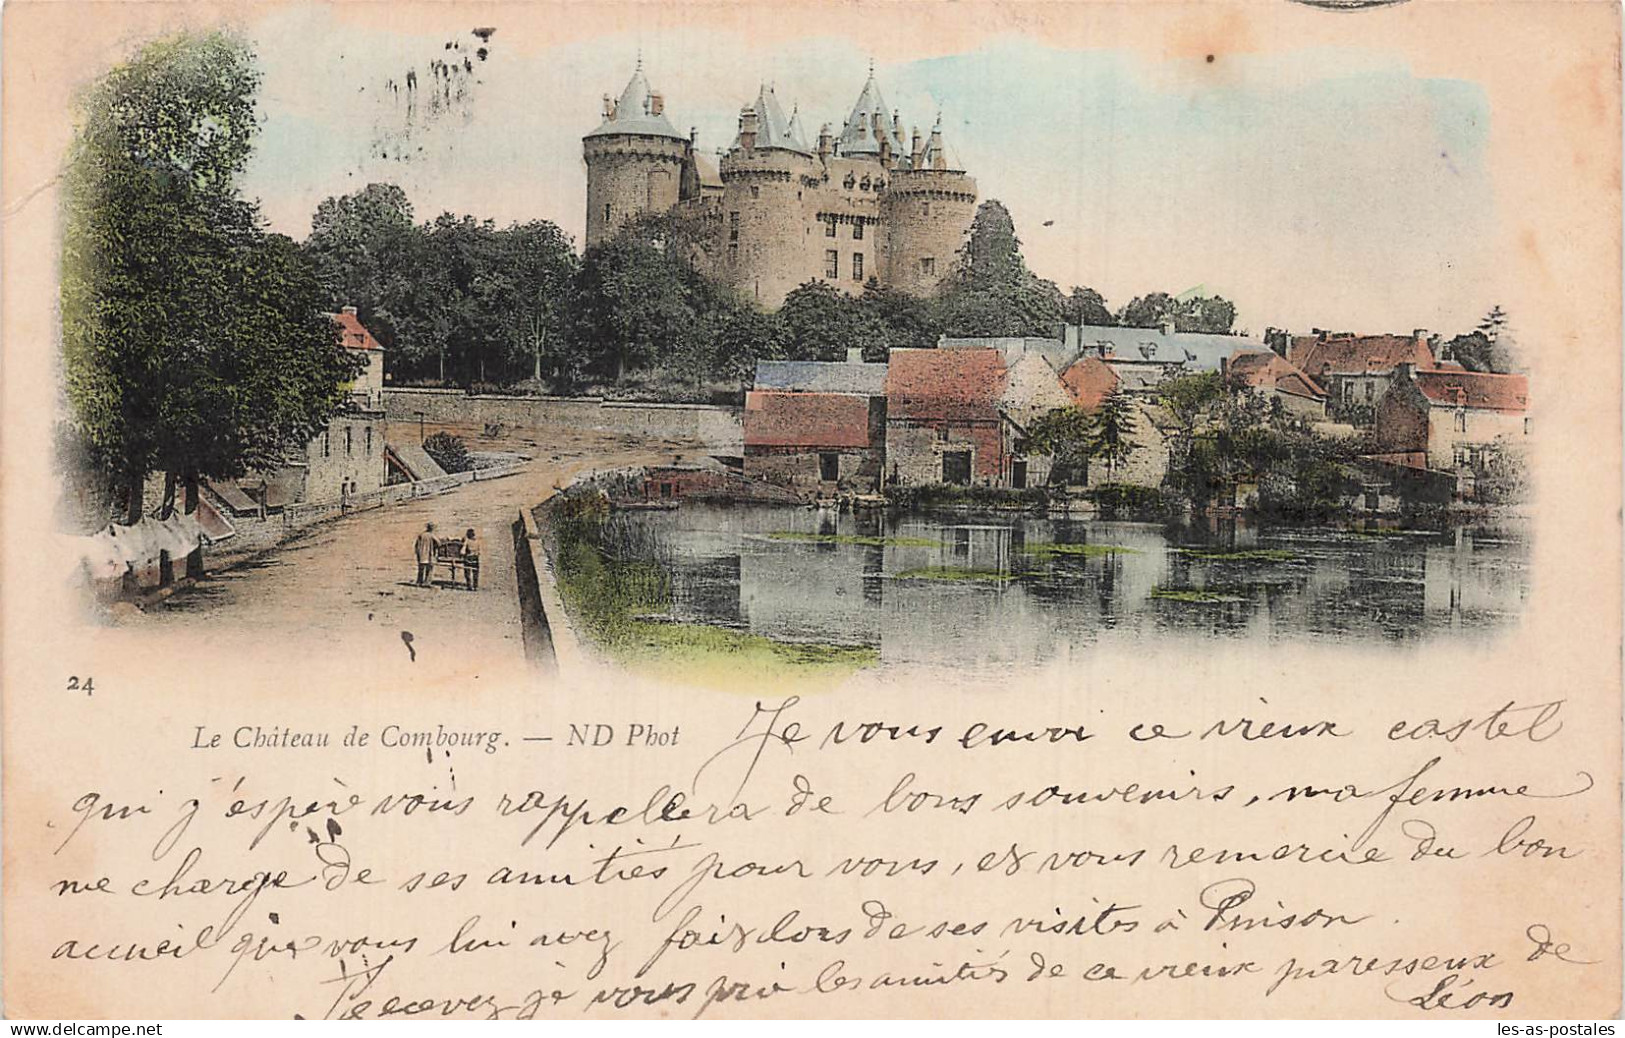 24
Le Château de Combourg. — ND Phot
Je vous envoi ce vieux castel
qui j'espère vous rappellera de bons souvenirs, ma femme
me charge de ses amitiés pour vous, et vous remercie du bon
accueil que vous lui avez fait lors de ses visites à
Recevez je vous prie les amitiés de ce vieux paresseux de
Léon
les-as-postales.com